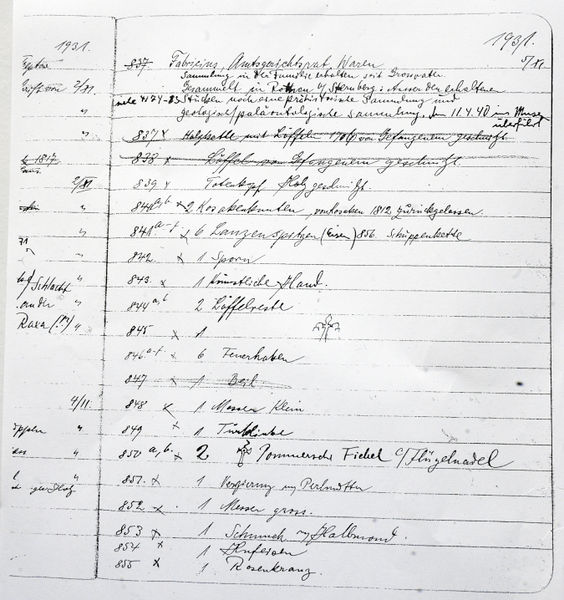 1931.
1931.
5/XI.
837 Fabricius, Amtsgerichtsrat, Waren
Sammlung in der Familie erhalten seit Grossvater
Gesammelt in Rothen b/Sternberg: Ausser den erhaltenen
Stücken noch eine prähistorische Sammlung und
geologisch/paläontologische Sammlung, am 11.4.40 ins Museum
überführt
2/XI.
837 x Holzkette mit Löffeln von Gefangenem geschnitzt.
1817 838 x Löffel von Gefangenem geschnitzt
2/XI 839 x Totenkopf Holz geschnitzt.
" 840 a,b x 2 Kosakenknuten, von Kosaken 1812 zurückgelassen.
" 841 a-f x 6 Lanzenspitzen (Eisen) 856 Schuppenkette
" 842. x 1 Sporn
Schlacht " 843. x 1 Künstliche Hand.
an der " 844 a,b 2 Löffelreste
Raxa (?) " 845 x 1
846 a-f x 6 Feuerhaken
847 x 1 Beil
4/11. 848 x 1 Messer klein
" 849 x 1 Türklinke
" 850 a,b. x 2 Pommersche Fibel c/Flügelnadel
" 851. x 1 Verzierung m/Perlmutter
852. x 1 Messer gross.
853 x 1 Schmuck m/Halbmond.
854 x 1 Hufeisen
855 x 1 Rosenkranz.